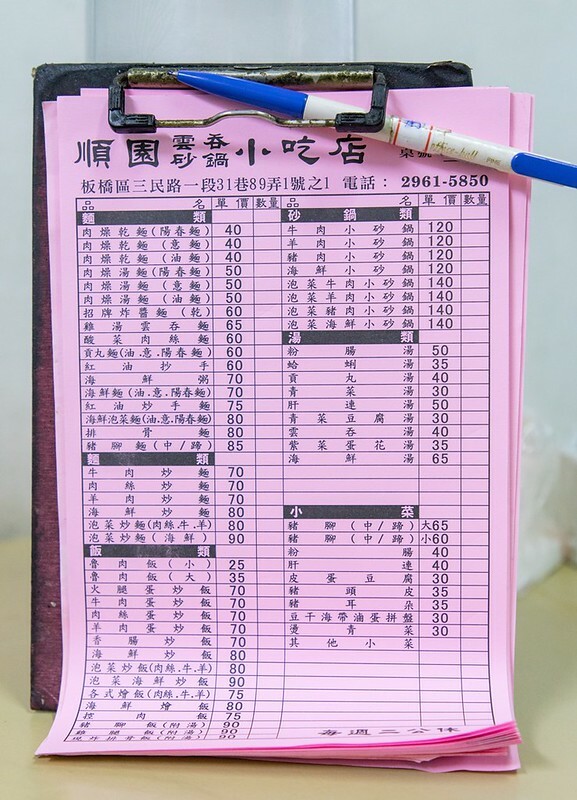 順園雲吞砂鍋小吃店
桌號
板橋區三民路一段31巷89弄1號之1 電話：2961-5850
品名 單價 數量
麵類
肉燥乾麵(陽春麵) 40
肉燥乾麵(意麵) 40
肉燥乾麵(油麵) 40
肉燥湯麵(陽春麵) 50
肉燥湯麵(意麵) 50
肉燥湯麵(油麵) 50
招牌炸醬麵(乾) 60
雞湯雲吞麵 65
酸菜肉絲麵 60
貢丸麵(油.意.陽春麵) 60
紅油抄手 60
海鮮粥 70
海鮮麵(油.意.陽春麵) 70
紅油炒手麵 75
海鮮泡菜麵(油.意.陽春麵) 80
排骨麵 80
豬腳麵(中/蹄) 85
麵類
牛肉炒麵 70
肉絲炒麵 70
羊肉炒麵 70
海鮮炒麵 80
泡菜炒麵(肉絲.牛.羊) 80
泡菜炒麵(海鮮) 90
飯類
魯肉飯(小) 25
魯肉飯(大) 35
火腿蛋炒飯 70
牛肉蛋炒飯 70
肉絲蛋炒飯 70
羊肉蛋炒飯 70
香腸炒飯 70
海鮮炒飯 80
泡菜炒飯(肉絲.牛.羊) 80
泡菜海鮮炒飯 90
各式燴飯(肉絲.牛.羊) 75
海鮮燴飯 80
控肉飯 75
豬腳飯(附湯) 90
雞腿飯(附湯) 90
現炸排骨飯(附湯) 90
品名 單價 數量
砂鍋類
牛肉小砂鍋 120
羊肉小砂鍋 120
豬肉小砂鍋 120
海鮮小砂鍋 120
泡菜牛肉小砂鍋 140
泡菜羊肉小砂鍋 140
泡菜豬肉小砂鍋 140
泡菜海鮮小砂鍋 140
湯類
粉腸湯 50
蛤蜊湯 35
貢丸湯 40
青菜湯 30
肝連湯 50
青菜豆腐湯 30
雲吞湯 40
紫菜蛋花湯 35
海鮮湯 65
小菜
豬腳(中/蹄) 大65
豬腳(中/蹄) 小60
粉腸 40
肝連 40
皮蛋豆腐 30
豬頭皮 35
豬耳朵 35
豆干海帶滷蛋拼盤 30
燙青菜 30
其他小菜
每週二公休